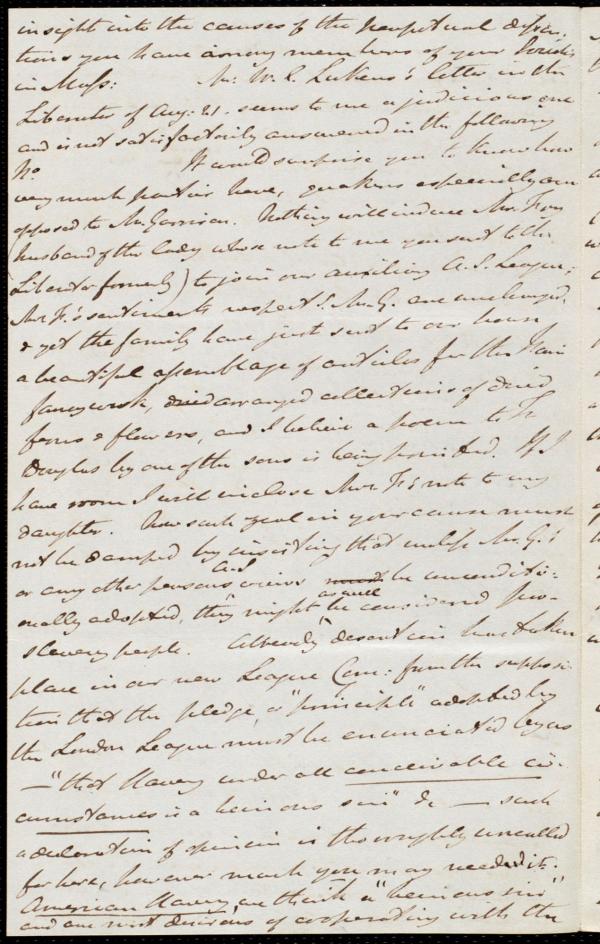 insight into the causes of the perpetual dissen:
tions you have among members of your Societies
in Mass: Mr. W. L. Lukens's letter in the
Liberator of Aug: 21. seems to me a judicious one
and is not satisfactorily answered in the following
No It would surprise you to know how
very much parties here, quakers especially are
opposed to Mr. Garrison. Nothing will induce Mr.
(husband of the lady whose note to me you sent to the
Liberator formerly) to join our auxiliary A. S. League;
Mr F.'s sentiments respectg. Mr G. are unchanged,
& yet the family have just sent to our house
a beautiful assemblage of articles for the Fair
fancywork, dried arranged collections of dried
ferns & flowers, and I believe a poem to F.
Douglas by one of the sons is being printed. If I
have room I will inclose Mrs F.'s note to my
daughter. Now such zeal in your cause must
not be damped by insisting that unless Mr. G.'s
or any other persons views could be unconditi:
onally adopted, they might as well be considered pro-
slavery people. Already desertions have taken
place in our new League Com: from the supposi
tion that the pledge, a "principle" adopted by
the London League must be enunciated by us
—"that slavery under all conceivable cir:
cumstances is a heinous sin" &c — such
a declaration of opinion is thoroughly uncalled
for here, however much you may need it.
American slavery, we think a "heinous sin"
and are most desirous of cooperating with the